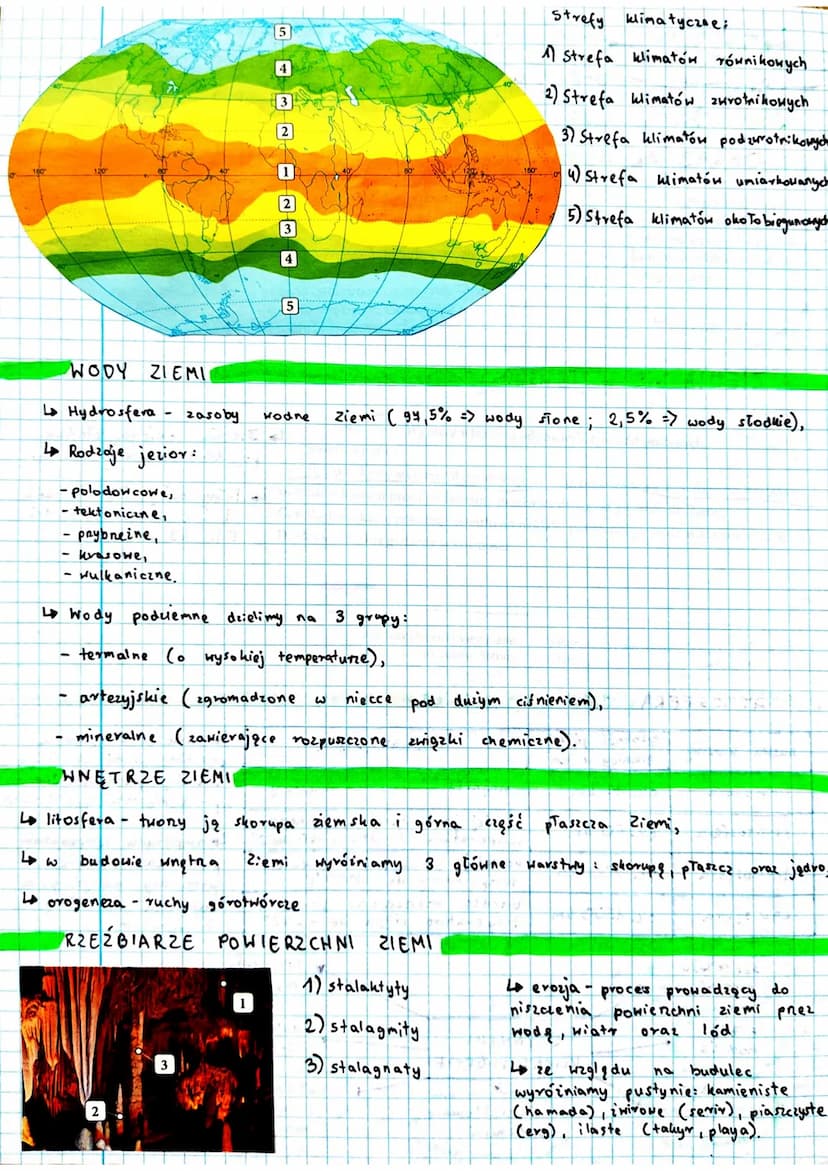 Strefy klimatyczne:
1) Strefa klimatów równikowych
2) Strefa klimatów zwrotnikowych
3) Strefa klimatów podzwrotnikowych
4) Strefa klimatów umiarkowanych
5) Strefa klimatów okołobiegunowych
5
4
3
2
1
2
3
4
5
0°
160°
120°
80°
40°
40°
80°
120°
160°
0°
40°
40°
WODY ZIEMI
↳ Hydrosfera - zasoby wodne Ziemi (97,5% => wody słone ; 2,5% => wody słodkie),
↳ Rodzaje jezior:
- polodowcowe,
- tektoniczne,
- przybrzeżne,
- krasowe,
- wulkaniczne.
↳ Wody podziemne dzielimy na 3 grupy:
- termalne (o wysokiej temperaturze),
- artezyjskie (zgromadzone w niecce pod dużym ciśnieniem),
- mineralne (zawierające rozpuszczone związki chemiczne).
WNĘTRZE ZIEMI
↳ litosfera - tworzy ją skorupa ziemska i górna część płaszcza Ziemi,
↳ w budowie wnętrza Ziemi wyróżniamy 3 główne warstwy: skorupę, płaszcz oraz jądro,
↳ orogeneza - ruchy górotwórcze
RZEŹBIARZE POWIERZCHNI ZIEMI
1
3
2
1) stalaktyty
2) stalagmity
3) stalagnaty
↳ erozja - proces prowadzący do
niszczenia powierzchni ziemi przez
wodę, wiatr oraz lód
↳ ze względu na budulec
wyróżniamy pustynie: kamieniste
(hamada), żwirowe (serir), piaszczyste
(erg), ilaste (takyr, playa).